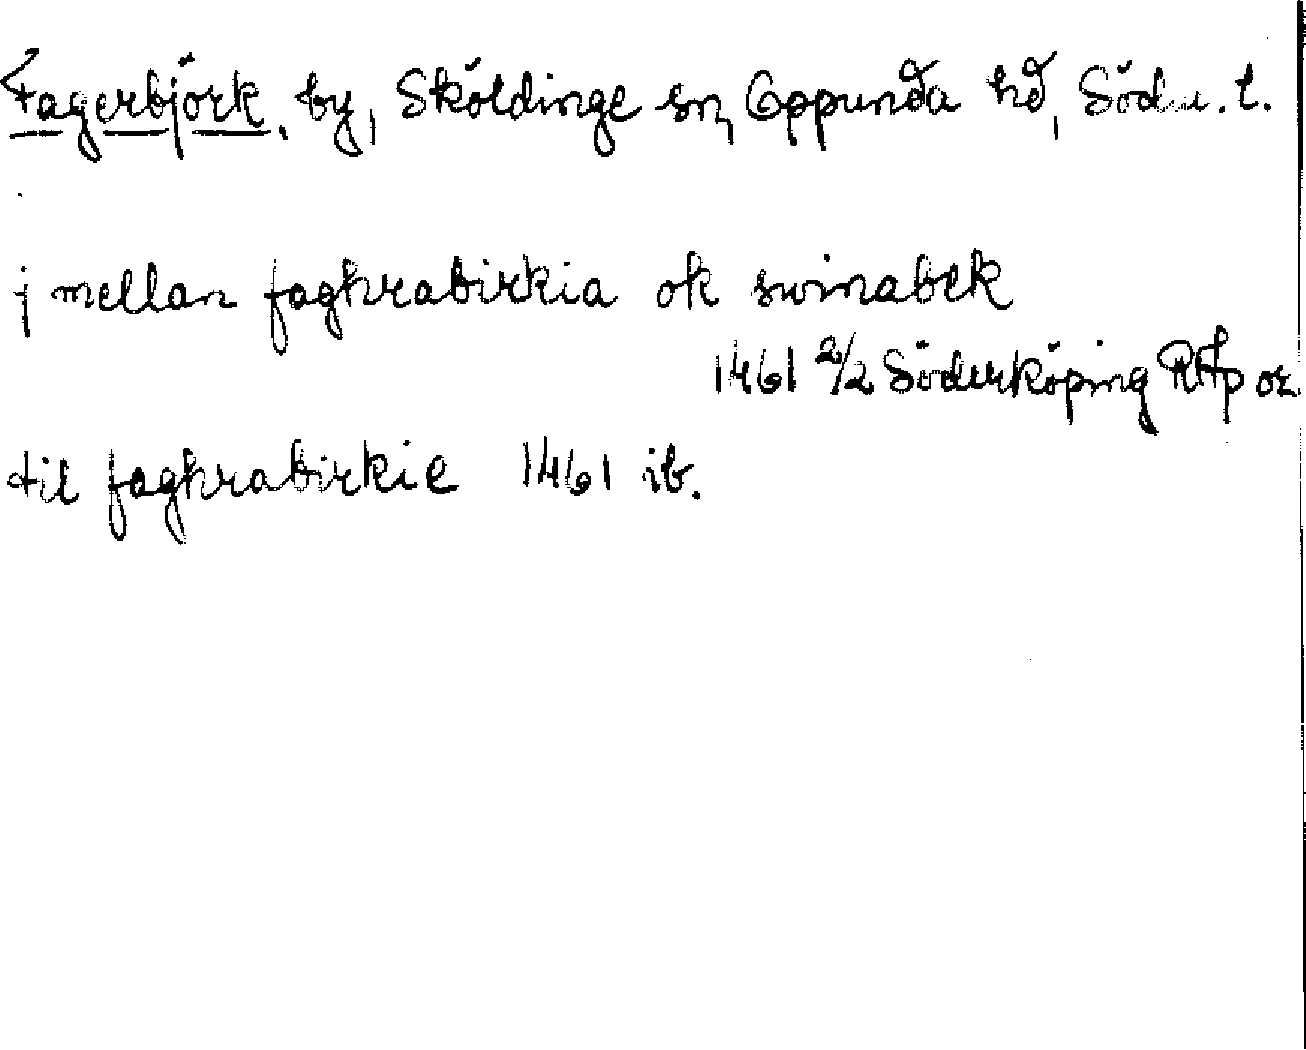 Fagerbjörk, by, Sköldinge sn, Oppunda hd, Södm. l.
j mellan faghrabirkia ok swinabek
1461 2/2 Söderköping RAp or.
til faghrabirkie 1461 ib.